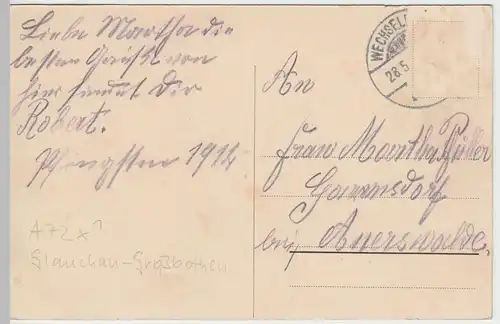 Liebe Martha die
besten Grüße von
hier sendet Dir
Robert.
Pfingsten 1912
A72x1
Glauchau-Großbothen
WECHSEL
28.5
An
Frau Martha Püller
Garnsdorf
bei Auerswalde.